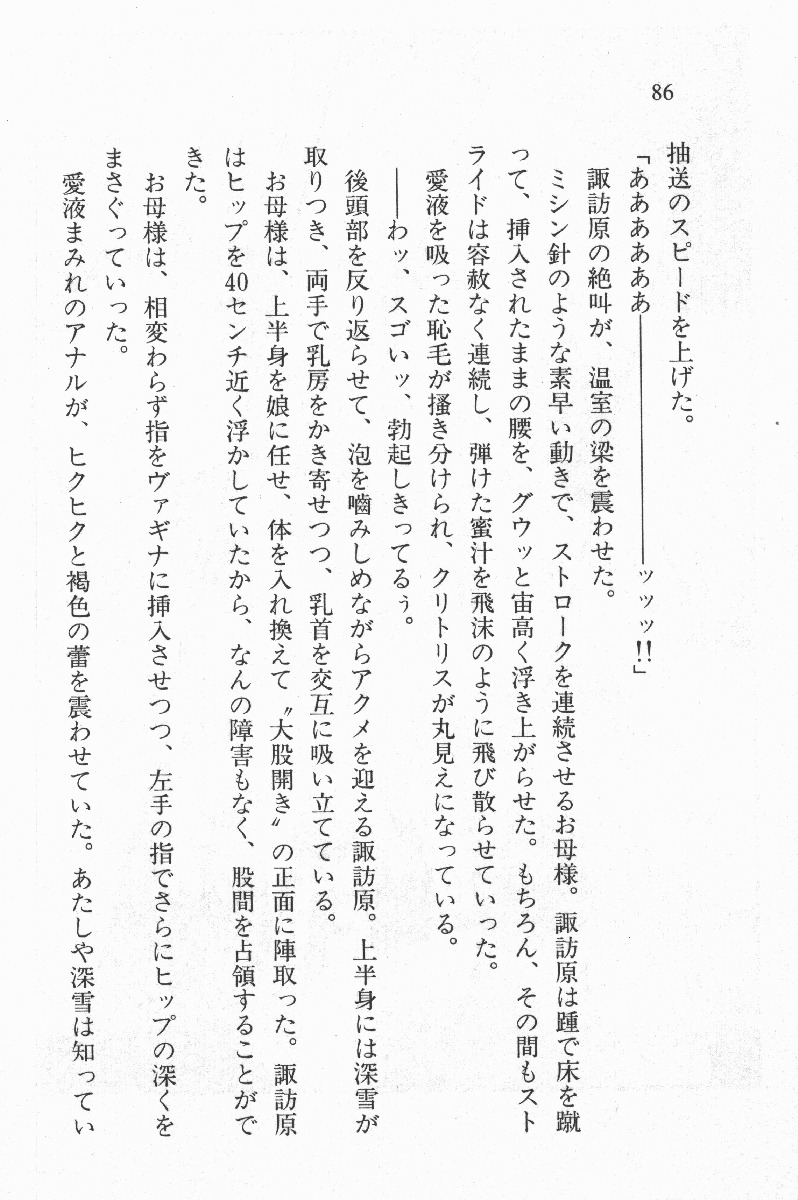 86
抽送のスピードを上げた。
「ああああああ――――――ッッッ!!」
諏訪原の絶叫が、温室の梁を震わせた。
ミシン針のような素早い動きで、ストロークを連続させるお母様。諏訪原は踵で床を蹴
って、挿入されたままの腰を、グウッと宙高く浮き上がらせた。もちろん、その間もスト
ライドは容赦なく連続し、弾けた蜜汁を飛沫のように飛び散らせていった。
愛液を吸った恥毛が掻き分けられ、クリトリスが丸見えになっている。
――わッ、スゴいッ、勃起しきってるぅ。
後頭部を反り返らせて、泡を嚙みしめながらアクメを迎える諏訪原。上半身には深雪が
取りつき、両手で乳房をかき寄せつつ、乳首を交互に吸い立てている。
お母様は、上半身を娘に任せ、体を入れ換えて〝大股開き〟の正面に陣取った。諏訪原
はヒップを40センチ近く浮かしていたから、なんの障害もなく、股間を占領することがで
きた。
お母様は、相変わらず指をヴァギナに挿入させつつ、左手の指でさらにヒップの深くを
まさぐっていった。
愛液まみれのアナルが、ヒクヒクと褐色の蕾を震わせていた。あたしや深雪は知ってい